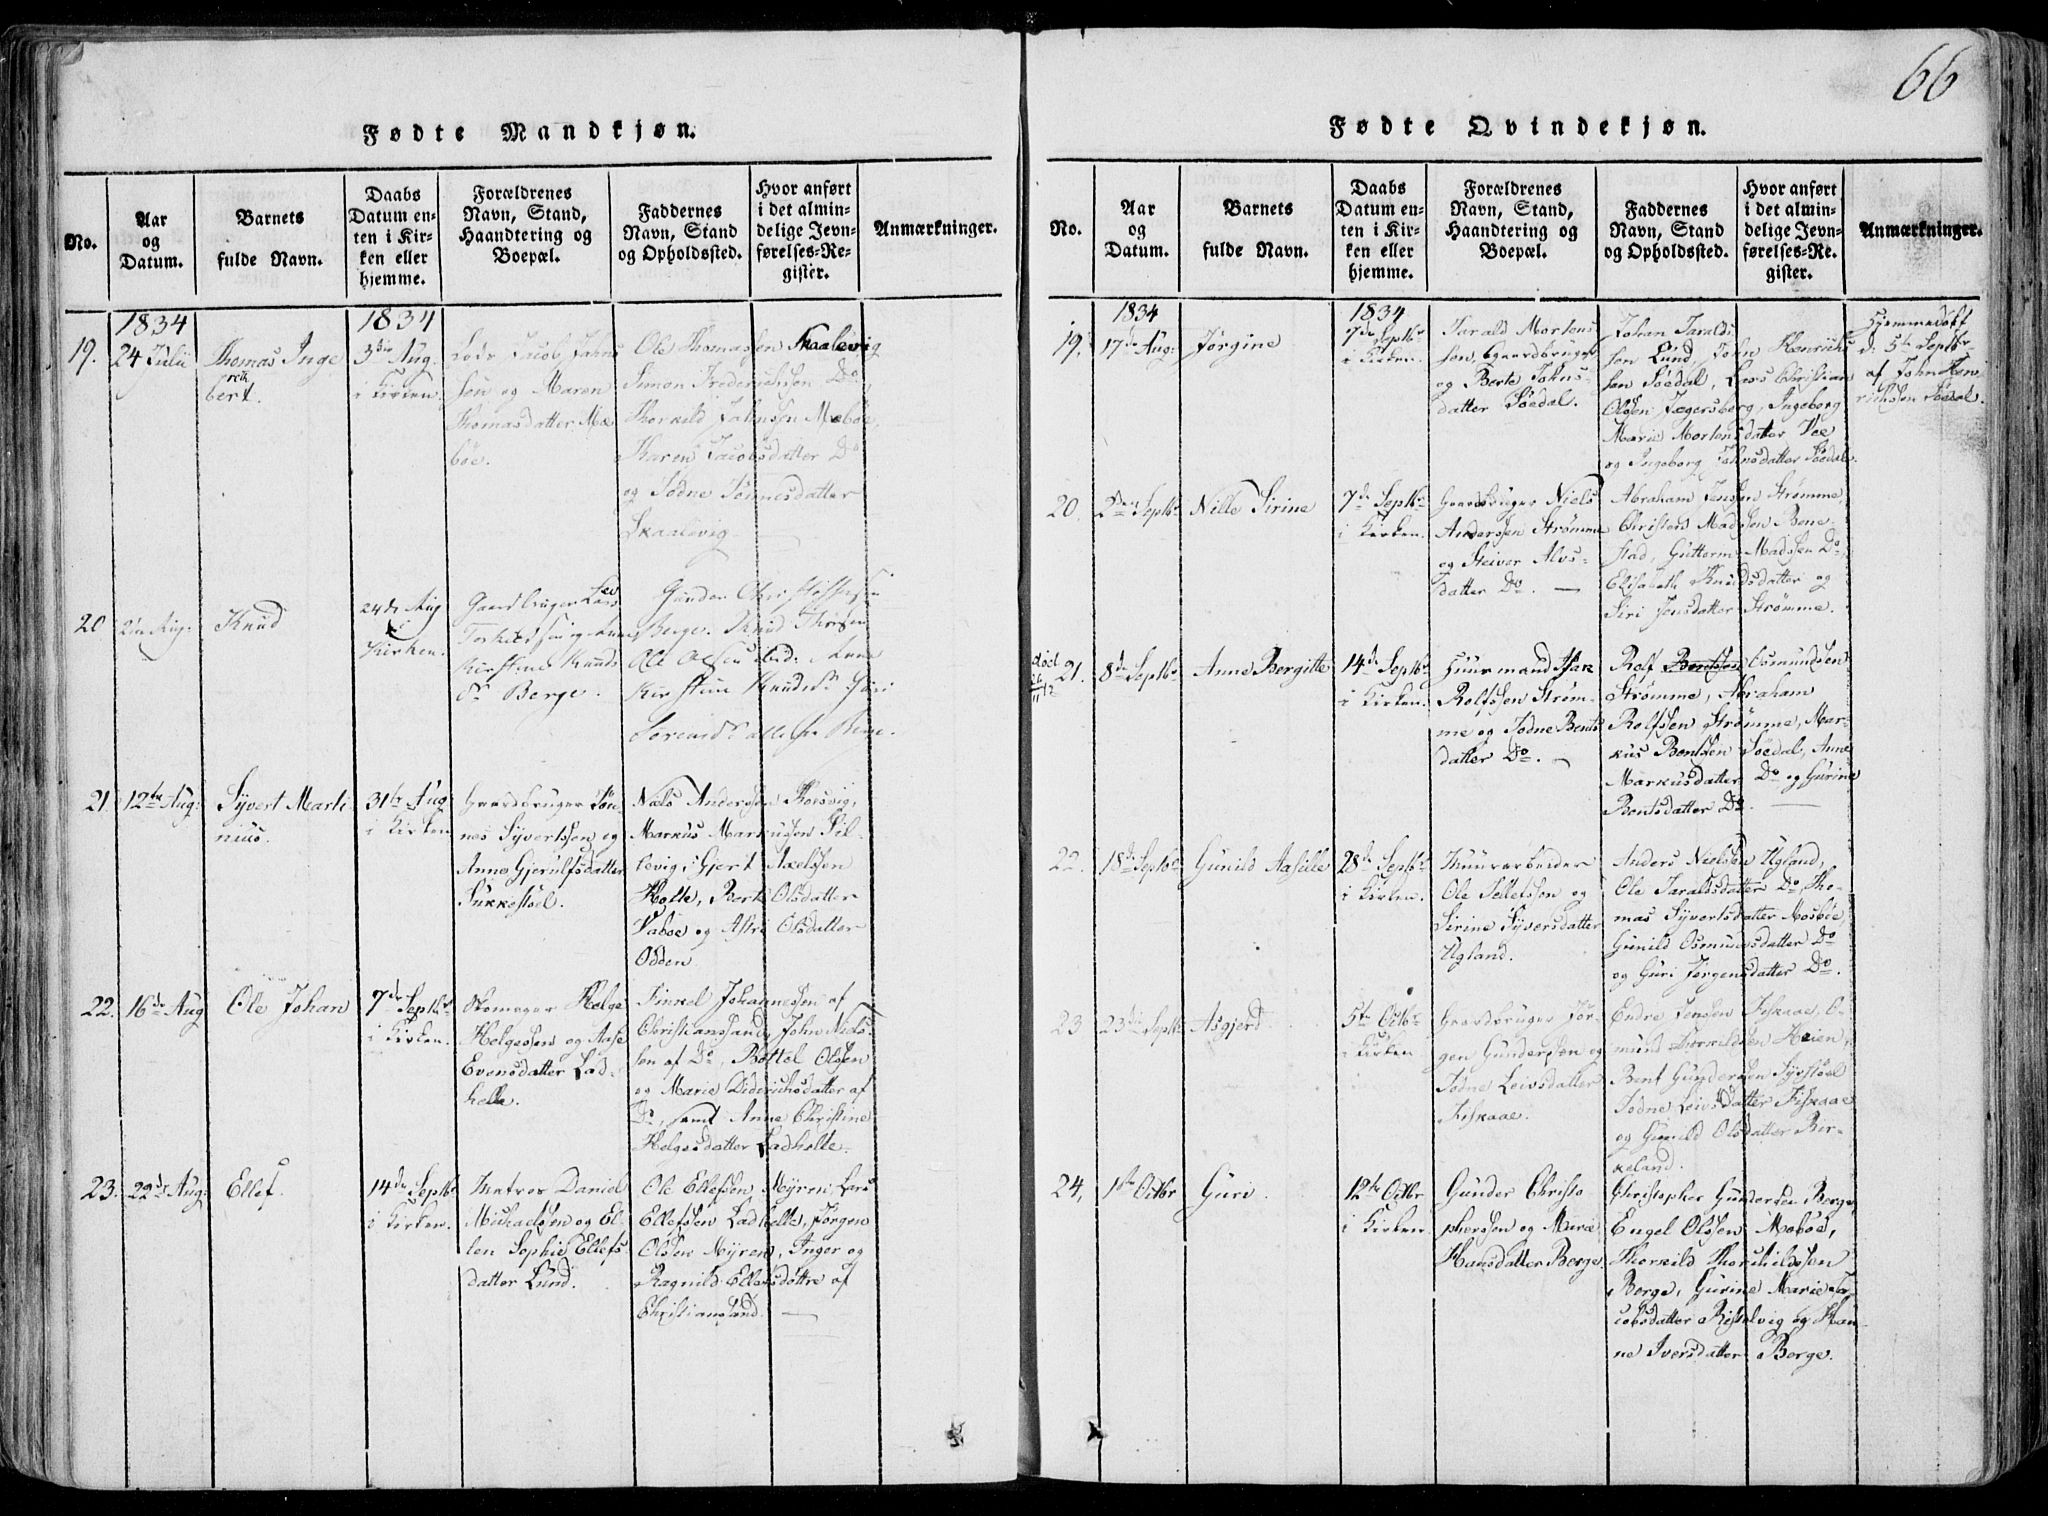 66
Fødte Mandkjøn.
No.
Aar
og
Datum.
Barnets
fulde Navn.
Daabs
Datum en-
ten i Kir-
ken eller
hjemme.
Forældrenes
Navn, Stand,
Haandtering og
Boepæl.
Faddernes
Navn, Stand
og Opholdssted.
Hvor anført
i det almin-
delige Jevn-
førelses-Re-
gister.
Anmærkninger.
1834
1834
19.
24 Julii
Thomas Inge
bert.
3die Aug:
i Kirken.
Lods Jacob Jahns
sen og Maren
Thomasdatter Mæ
böe.
Ole Thomassen Skaalevig
Simon Fredericksen Do
Thorkild Jahnsen Mæböe,
Karen Jacobsdatter Do
og Todne Tönnesdatter
Skaalevig
20
Aug:
Knud
24de Aug
i
Kirken.
Gaardbruger Lars
Torkildsen og
Kirstine Knuds
Dr Berge.
Gunder Christophersen
Berge. Knud
Ole Olsen ibid: Anne
Kirstine Knudsd.
alle fra Berge.
21.
12te Aug:
Syvert Marti
nius.
31te Aug
i Kirken.
Gaardbruger Tön-
nes Syvertssen og
Anne Gjerulfsdatter
Sukkestöel.
Niels Anderssen Korsvig,
Markus Markussen Sil-
levig, Gjert Axelssen
Holte, Berte Olsdatter
Vaböe og Astri Olsdatter
Odden.
22.
16de Aug
Ole Johan
7de Septbr
i Kirken.
Skomager Helge
Helgessen og Aase
Evensdatter Lad-
helle.
Finkel Johannessen af
Christianssand, John Niels-
sen af Do, Bottel Olssen
og Marie Diderichsdatter af
Do, samt Anne Christine
Helgesdatter Ladholte.
23.
22de Aug:
Ellef.
14de Septbr
i Kirken.
Matros Daniel
Michaelssen og El-
len Sophie Ellefs-
datter Lund.
Ole Ellefssen Myren, Lars
Ellefssen Ladhelle, Jörgen
Olssen Myren, Inger og
Ragnild Ellefsdöttre af
Christianssand.
Fødte Qvindekjøn.
No.
Aar
og
Datum.
Barnets
fulde Navn.
Daabs
Datum en-
ten i Kir-
ken eller
hjemme.
Forældrenes
Navn, Stand,
Haandtering og
Boepæl.
Faddernes
Navn, Stand
og Opholdssted.
Hvor anført
i det almin-
delige Jevn-
førelses-Re-
gister.
Anmærkninger.
1834
1834
19.
17de Aug:
Jörgine
7de Septbr
i Kirken.
Tarald Mortens-
sen, Gaardbruger
og Berte Jahns-
datter Söedal.
Johan Taralds-
sen Lund, John Henrichs
sen Söedal, Lars Christian
Olssen Jægersberg, Ingeborg
Marie Mortensdatter Vee
og Ingeborg Jahnsdatter Söedal.
Hjemmedöbt
d. 5te Septbr
af John Hen-
richsen Söedal.
20.
2den Septbr
Nille Sirine
7de Septbr
i Kirken.
Gaardbruger Niels
Anderssen Strömme
og Steiver Alvs-
datter Do.
Abraham Jenssen Strömme,
Christens Madssen Bene-
stad, Guttorm Madssen Do,
Elisabeth Knudsdatter og
Siri Jensdatter Strömme.
död
26
11 42
21.
8de Septbr
Anne Bergitte
14de Septbr
i Kirken.
Huusmand Isak
Rolfssen Ström-
me og Todne Bents
datter Do.
Rolf Osmundssen
Strömme, Abraham
Rolfssen Strömme, Mar-
kus Bentssen Söedal, Anne
Markusdatter Do og Gurine
Bentsdatter Do.
22.
18de Septbr
Gunild Aasille
28de Septbr
i Kirken.
Muurarbeider
Ole Sellefssen og
Sirine Syversdatter
Ugland.
Anders Nielssen Ugland,
Ole Taraldsdatter Do, Tho-
mas Syvertsdatter Mosböe,
Gunild Osmundsdatter Do
og Guri Jörgensdatter Do.
23
23de Septbr
Asgjerd
5te Octbr
i Kirken
Gaardbruger Jör-
gen Gunderssen og
Todne Leivsdatter
Fiskaae.
Endre Jenssen Fiskaae, O-
mund Thorkildssen Heien,
Bent Gunderssen Syrstöel
Todne Leivsdatter Fiskaae
og Gunild Olsdatter Bir-
keland.
24,
1ste Octbr
Guri
12te Octbr
i Kirken
Gunder Christo
pherssen og Marie
Hansdatter Berge
Christopher Gunderssen Berge,
Engel Olssen Moböe,
Thorkild Thorkildssen
Berge, Gurine Marie Ja-
cobsdatter Ristelvig og Han-
ne Iversdatter Berge.